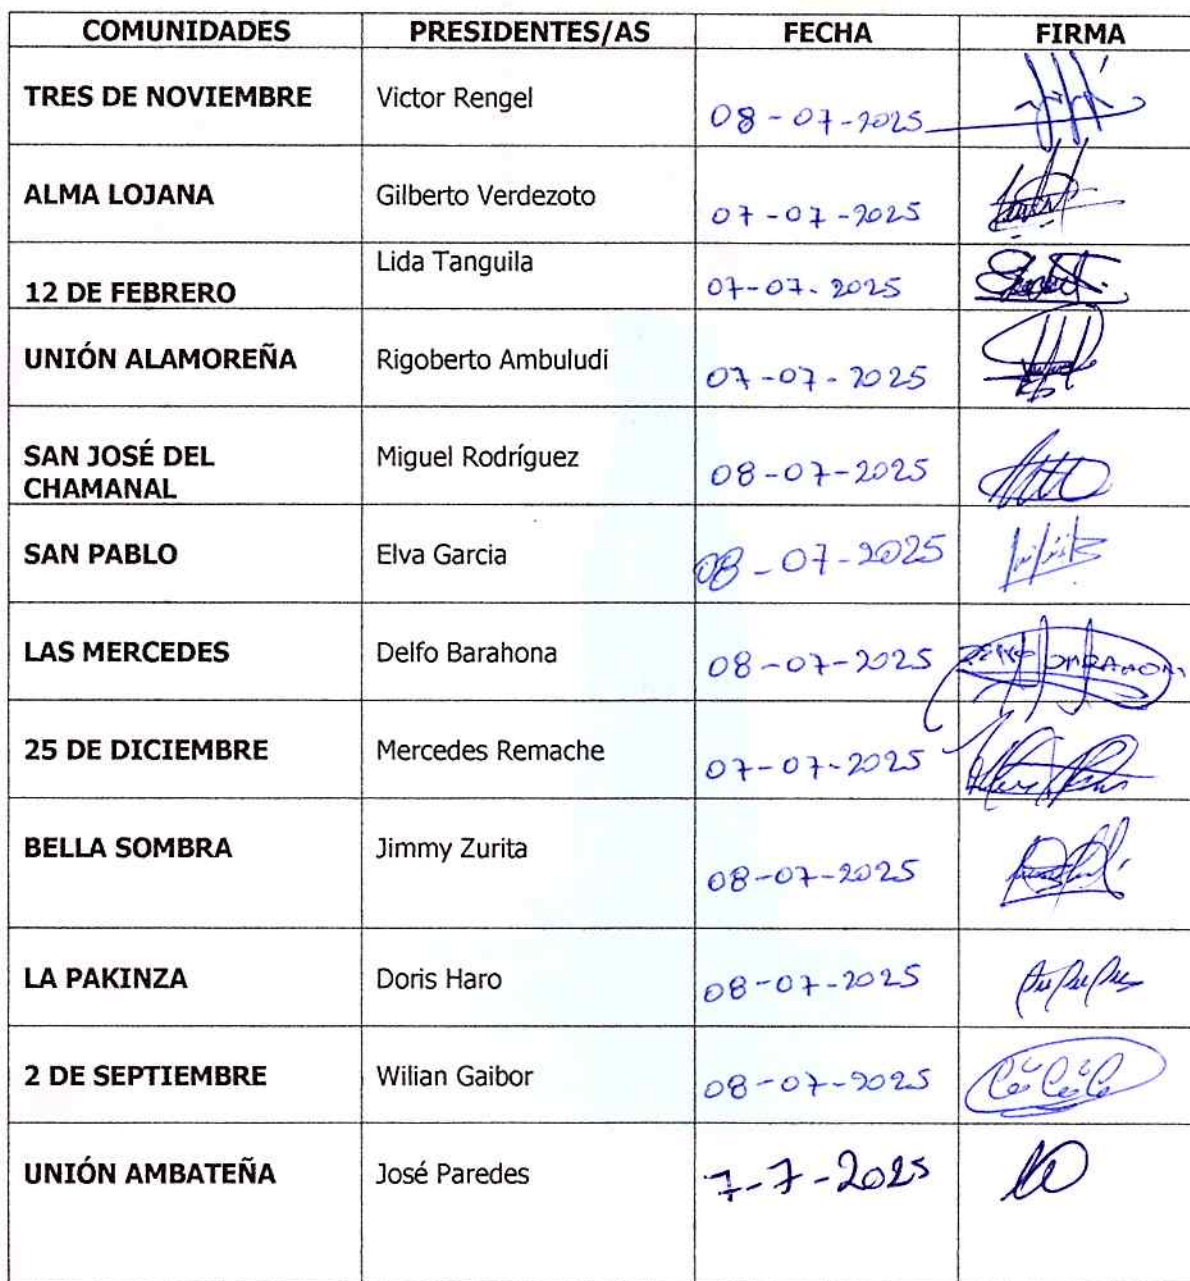 COMUNIDADES PRESIDENTES/AS FECHA FIRMA
TRES DE NOVIEMBRE Victor Rengel 08-07-2025
ALMA LOJANA Gilberto Verdezoto 07-07-2025
12 DE FEBRERO Lida Tanguila 07-07-2025
UNIÓN ALAMOREÑA Rigoberto Ambuludi 07-07-2025
SAN JOSÉ DEL
CHAMANAL Miguel Rodríguez 08-07-2025
SAN PABLO Elva Garcia 08-07-2025
LAS MERCEDES Delfo Barahona 08-07-2025
25 DE DICIEMBRE Mercedes Remache 07-07-2025
BELLA SOMBRA Jimmy Zurita 08-07-2025
LA PAKINZA Doris Haro 08-07-2025
2 DE SEPTIEMBRE Wilian Gaibor 08-07-2025
UNIÓN AMBATEÑA José Paredes 7-7-2025